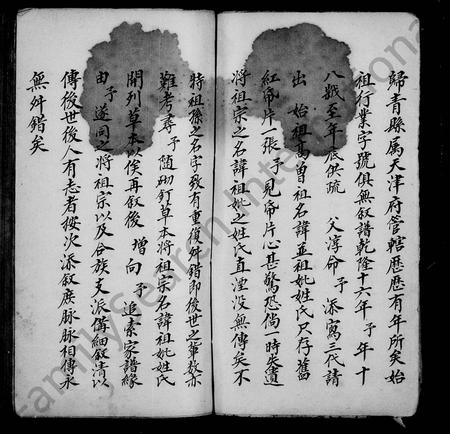 歸青縣属天津府管轄歷歷有年所矣始
祖行業字號俱無叙譜乾隆十六年予年十
八歲至年底供疏 父淳命予添寫三代請
出始祖高曾祖名諱並祖妣姓氏只存舊
紅帋片一張予見帋片心甚驚恐倘一時失遺
將祖宗之名諱祖妣之姓氏直湮没無傳矣不
特祖孫之名字致有重復舛錯即後世之軰數亦
難考尋予随砌釘草本將祖宗名諱祖妣姓氏
開列草本以俟再叙後増向予追索家譜緣
由予遂同之將祖宗以及合族支派俻細叙清以
傳後世後人有志者按次添叙庶脉脉相傳永
無舛錯矣
FamilySearch International